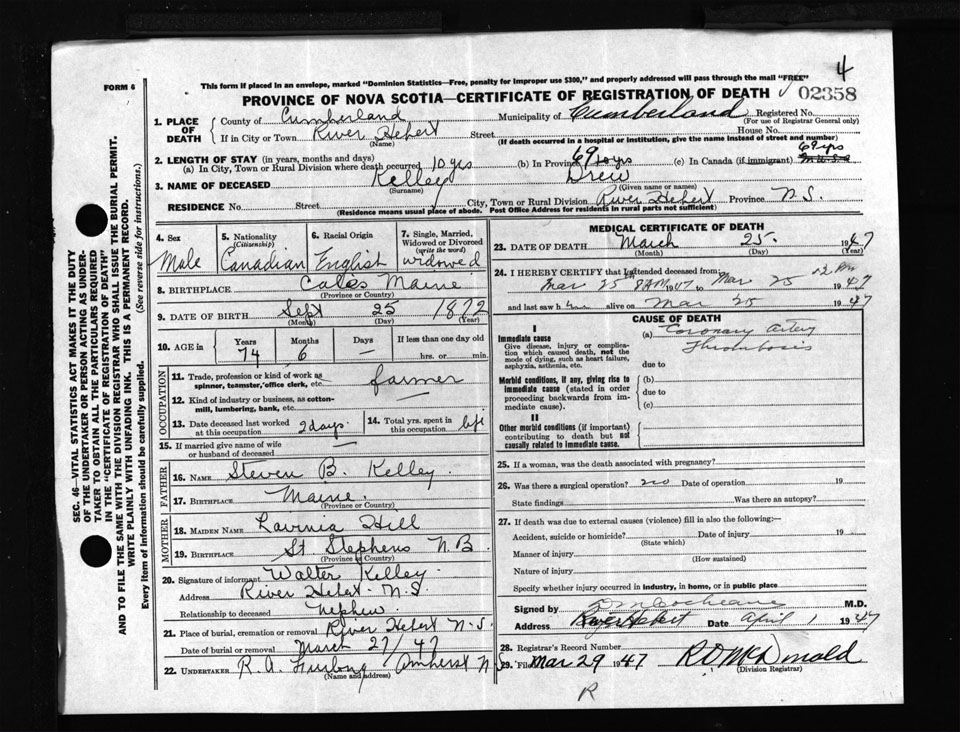 4
FORM 6
This form if placed in an envelope, marked "Dominion Statistics—Free, penalty for improper use $300," and properly addressed will pass through the mail "FREE"
PROVINCE OF NOVA SCOTIA—CERTIFICATE OF REGISTRATION OF DEATH 02358
1. PLACE OF DEATH
County of Cumberland Municipality of Cumberland Registered No.
(For use of Registrar General only)
If in City or Town River Hebert Street House No.
(Name) (If death occurred in a hospital or institution, give the name instead of street and number)
2. LENGTH OF STAY (in years, months and days) 69 yrs
(a) In City, Town or Rural Division where death occurred 10 yrs (b) In Province 69 yrs (c) In Canada (if immigrant)
3. NAME OF DECEASED Kelley Drew
(Surname) (Given name or names)
RESIDENCE No. Street City, Town or Rural Division River Hebert Province N.S.
(Residence means usual place of abode. Post Office Address for residents in rural parts not sufficient)
4. Sex Male
5. Nationality (Citizenship) Canadian
6. Racial Origin English
7. Single, Married, Widowed or Divorced (write the word) widowed
8. BIRTHPLACE Maine
(Province or Country)
9. DATE OF BIRTH Sept 25 1872
(Month) (Day) (Year)
10. AGE in Years Months Days If less than one day old
74 6 — hrs. or min.
OCCUPATION
11. Trade, profession or kind of work as spinner, teamster, office clerk, etc. farmer
12. Kind of industry or business, as cotton-mill, lumbering, bank, etc.
13. Date deceased last worked at this occupation 2 days
14. Total yrs. spent in this occupation life
15. If married give name of wife or husband of deceased
FATHER
16. NAME Steven B. Kelley
17. BIRTHPLACE Maine.
(Province or Country)
MOTHER
18. MAIDEN NAME Lavinia Hill
19. BIRTHPLACE St Stephens N.B.
(Province or Country)
20. Signature of informant Walter Kelley.
Address River Hebert. N.S.
Relationship to deceased nephew
21. Place of burial, cremation or removal River Hebert N.S.
Date of burial or removal March 27/47
22. UNDERTAKER R. A. Furlong Amherst N.S.
(Name and address)
MEDICAL CERTIFICATE OF DEATH
23. DATE OF DEATH March 25. 1947
(Month) (Day) (Year)
24. I HEREBY CERTIFY that I attended deceased from:
Mar 25 8 AM 1947 to Mar 25 12 PM 1947
and last saw him alive on Mar 25 1947
CAUSE OF DEATH
I
Immediate cause
Give disease, injury or complication which caused death, not the mode of dying, such as heart failure, asphyxia, asthenia, etc.
(a) Coronary Artery
Thrombosis
due to
Morbid conditions, if any, giving rise to immediate cause (stated in order proceeding backwards from immediate cause).
(b)
due to
(c)
II
Other morbid conditions (if important) contributing to death but not causally related to immediate cause.
25. If a woman, was the death associated with pregnancy?
26. Was there a surgical operation? no Date of operation 19
State findings Was there an autopsy?
27. If death was due to external causes (violence) fill in also the following:—
Accident, suicide or homicide? Date of injury 19
(State which)
Manner of injury
(How sustained)
Nature of injury
Specify whether injury occurred in industry, in home, or in public place
Signed by Cochrane M.D.
Address River Hebert Date April 1 1947
28. Registrar's Record Number
29. Filed Mar 29 1947 R D McDonald
(Division Registrar)
R
SEC. 46—VITAL STATISTICS ACT MAKES IT THE DUTY
OF THE UNDERTAKER OR PERSON ACTING AS UNDERTAKER TO OBTAIN ALL THE PARTICULARS REQUIRED
IN THE "CERTIFICATE OF REGISTRATION OF DEATH"
AND TO FILE THE SAME WITH THE DIVISION REGISTRAR WHO SHALL ISSUE THE BURIAL PERMIT.
WRITE PLAINLY WITH UNFADING INK. THIS IS A PERMANENT RECORD.
Every item of information should be carefully supplied. (See reverse side for instructions.)